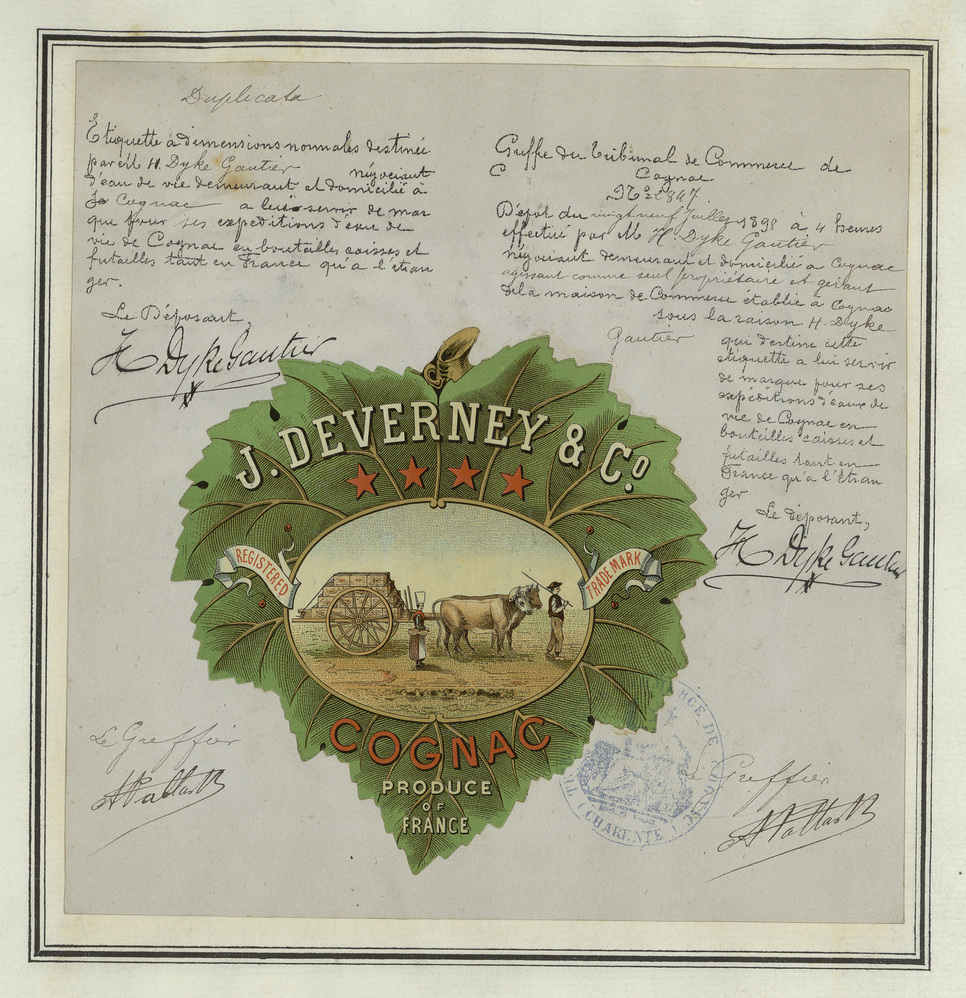 Duplicata
Etiquette à dimensions normales destinée
par M H. Dyke Gautier négociant
d'eau de vie demeurant et domicilié à
Cognac a lui servir de mar
que pour ses expéditions d'eau de
vie de Cognac en bouteilles caisses et
futailles tant en France qu'a l'étran
ger.
Le Déposant,
H Dyke Gautier
Greffe du Tribunal de Commerce de
Cognac
Dépot du vingt neuf juillet 1898 à 4 heures
effectué par M H. Dyke Gautier
négociant demeurant et domicilié à Cognac
agissant comme seul propriétaire et gérant
de la maison de Commerce établie à Cognac
sous la raison H. Dyke
Gautier qui destine cette
étiquette a lui servir
de marque pour ses
expéditions d'eaux de
vie de Cognac en
bouteilles caisses et
futailles tant en
France qu'a l'étran
ger
Le déposant,
H Dyke Gautier
J. DEVERNEY & Co
REGISTERED
TRADE MARK
COGNAC
PRODUCE
OF
FRANCE
Le Greffier
Le Greffier
DE COGNAC
(CHARENTE)